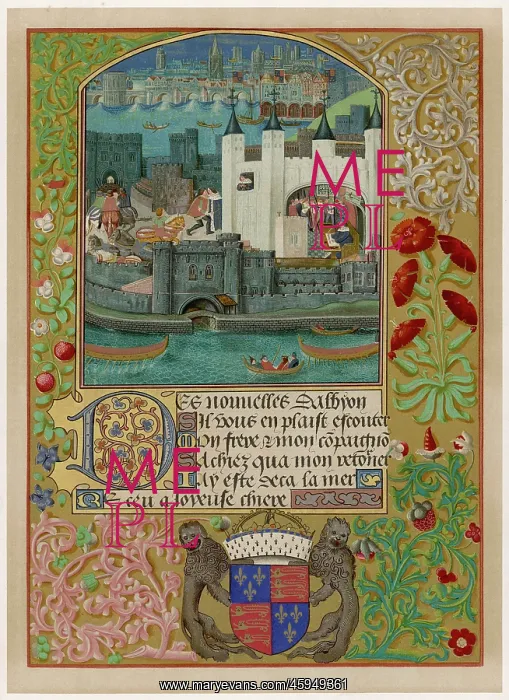 ME
PL
Des nouuelles dalbyon
Sil vous en plaist escouter
Mon frere & mon compaignon
Sachiez qua mon retorner
Iay este deca la mer
Receu a ioyeuse chiere
ME
PL
www.maryevans.com/45949361